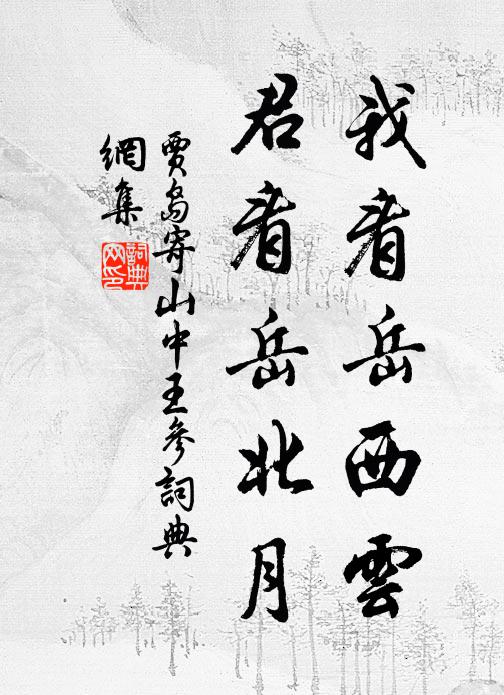 我看岳西雲
君看岳北月
賈島寄山中王參詞典
網集
詞典
網印